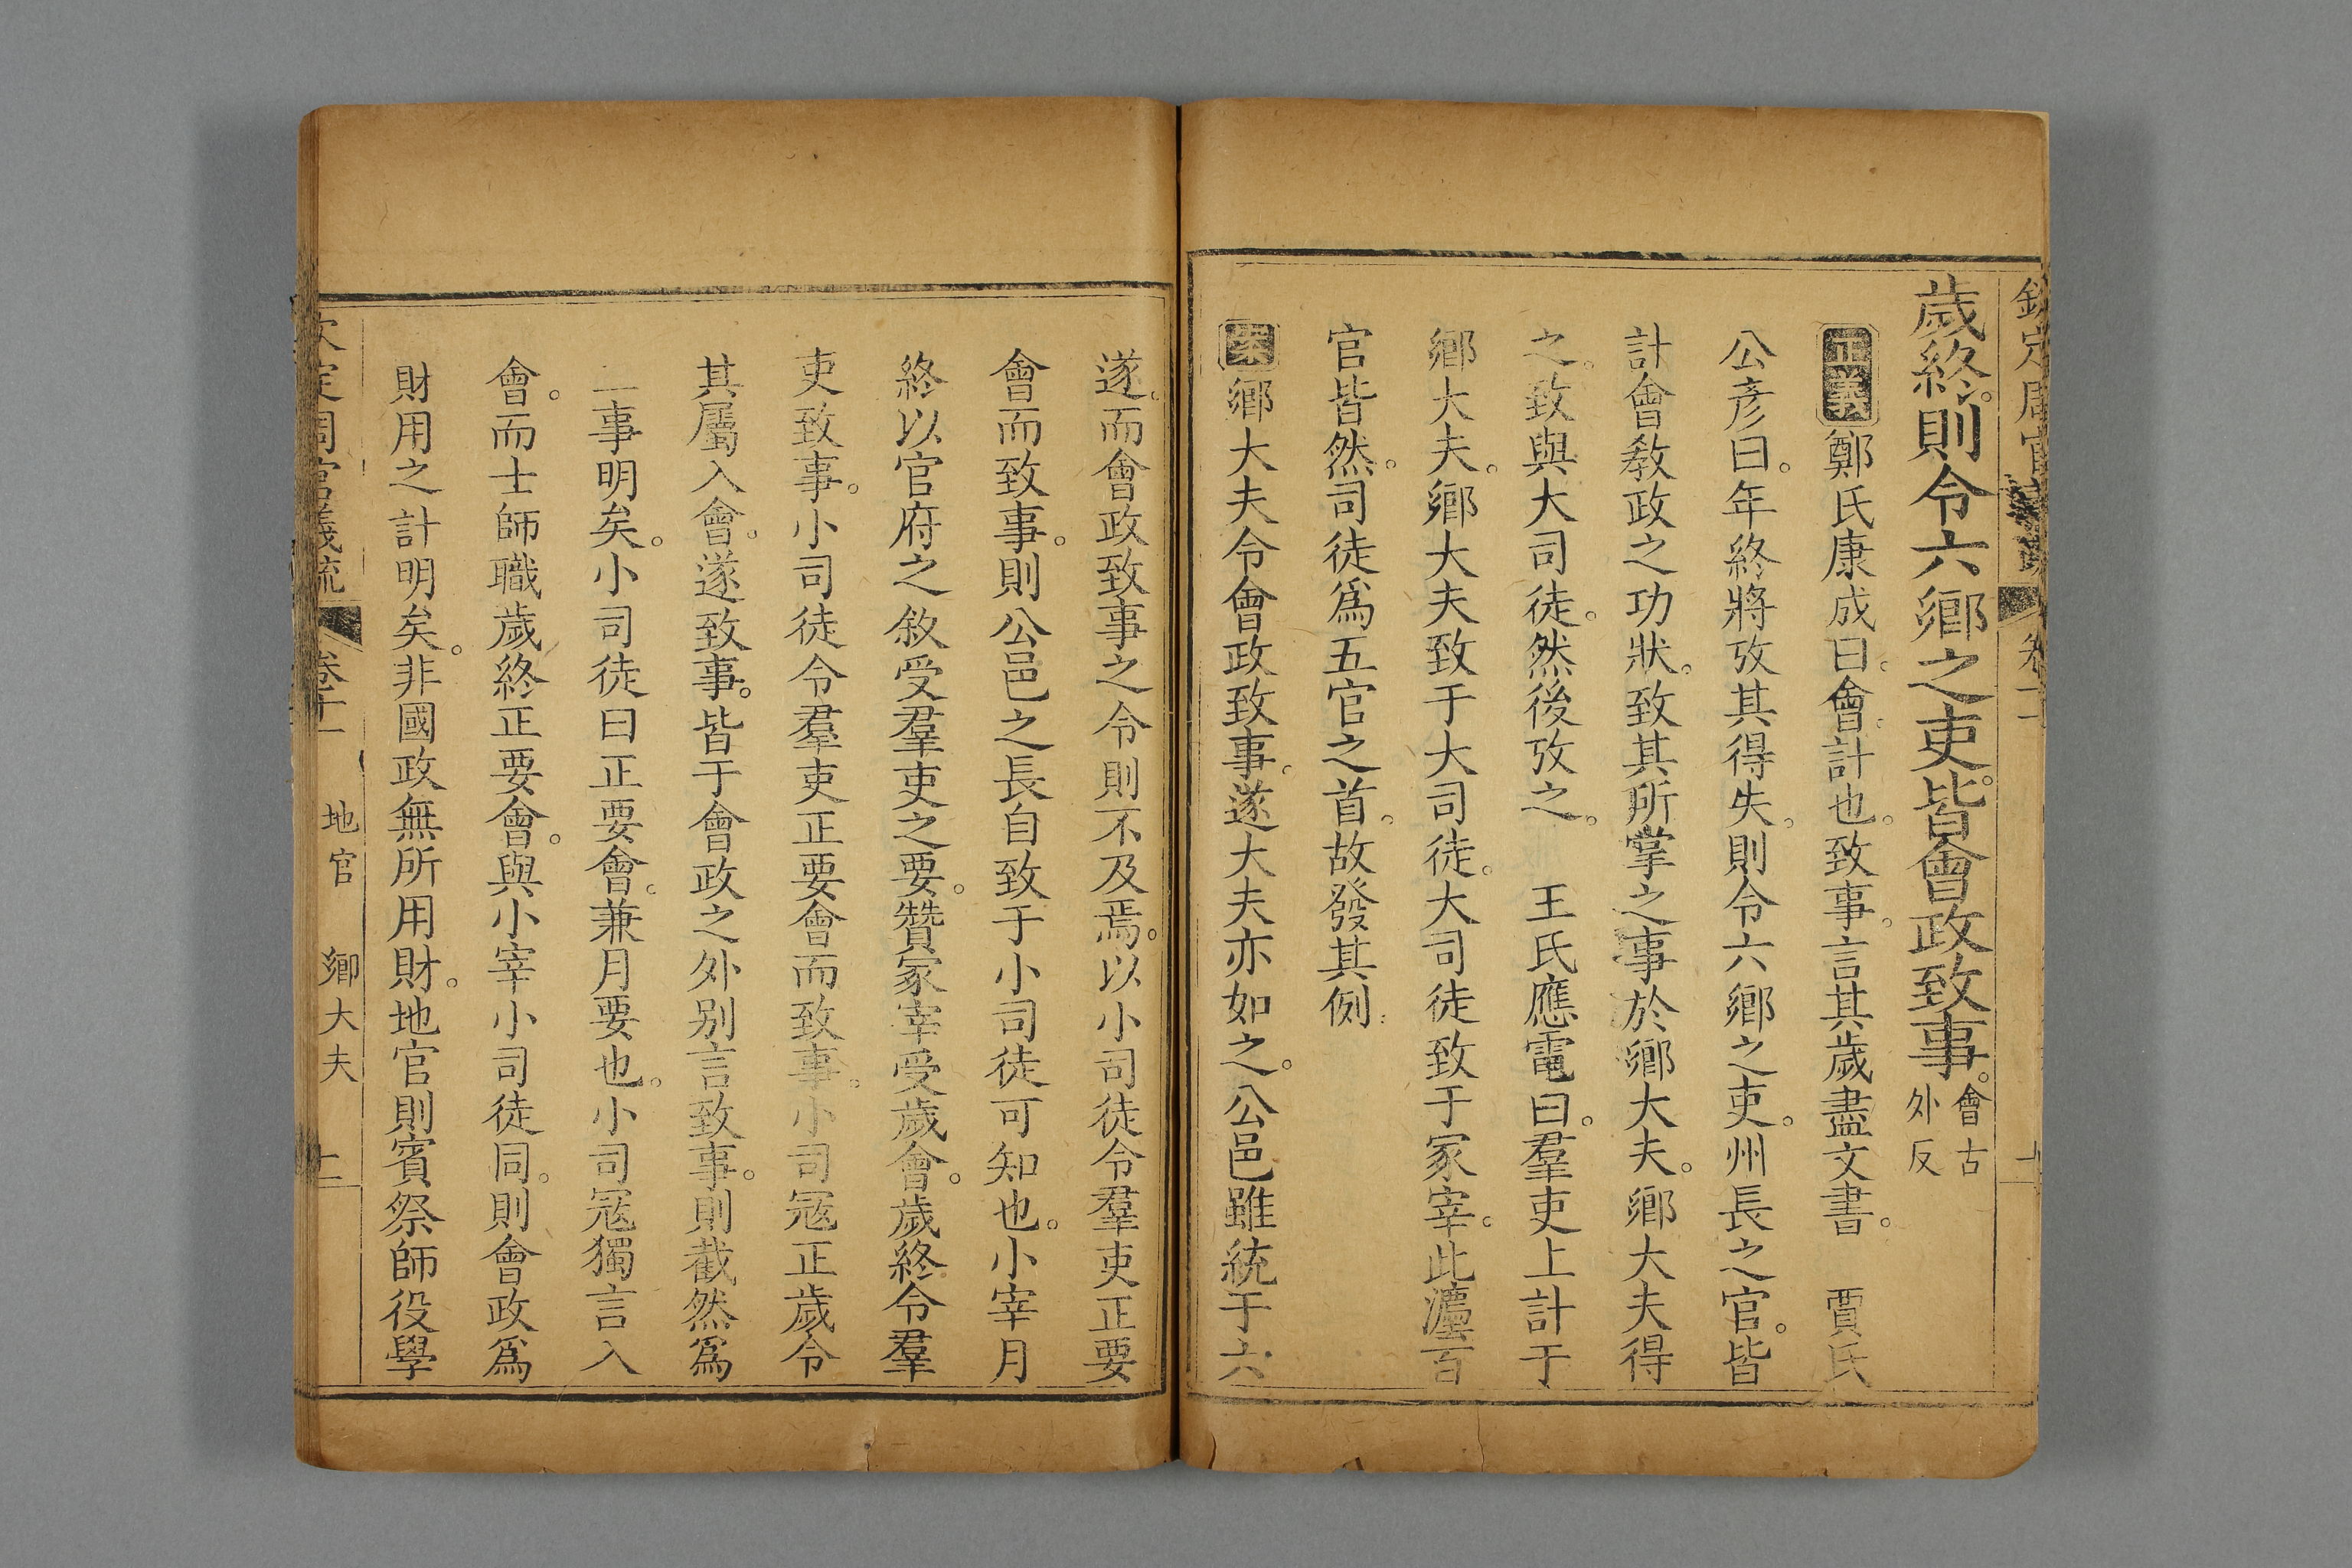 欽定周官義疏 卷十一
歲終。則令六鄉之吏。皆會政致事。會古外反
正義鄭氏康成曰。會。計也。致事。言其歲盡文書。 賈氏
公彥曰。年終將攷其得失。則令六鄉之吏。州長之官。皆
計會教政之功狀。致其所掌之事於鄉大夫。鄉大夫得
之。致與大司徒。然後攷之。 王氏應電曰。羣吏上計于
鄉大夫。鄉大夫致于大司徒。大司徒致于冢宰。此灋百
官皆然。司徒爲五官之首。故發其例。
案鄉大夫令會政致事。遂大夫亦如之。公邑雖統于六
遂。而會政致事之令則不及焉。以小司徒令羣吏正要
會而致事。則公邑之長自致于小司徒可知也。小宰月
終以官府之敘受羣吏之要。贊冢宰受歲會。歲終令羣
吏致事。小司徒令羣吏正要會而致事。小司寇正歲令
其屬入會。遂致事。皆于會政之外别言致事。則截然爲
二事明矣。小司徒曰正要會。兼月要也。小司寇獨言入
會。而士師職歲終正要會。與小宰小司徒同。則會政爲
財用之計明矣。非國政無所用財。地官則賓祭師役學
欽定周官義疏 卷十一 地官 鄉大夫 二